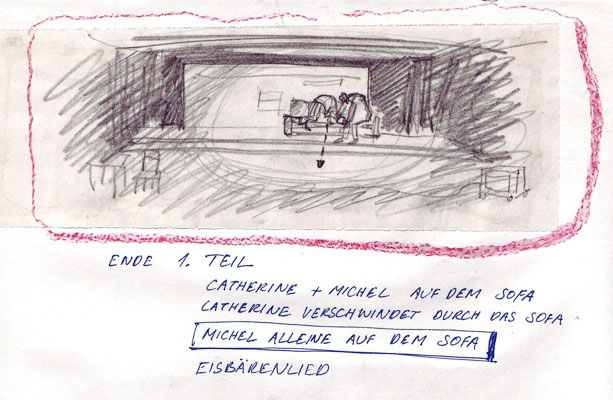 ENDE 1. TEIL
CATHERINE + MICHEL AUF DEM SOFA
CATHERINE VERSCHWINDET DURCH DAS SOFA
MICHEL ALLEINE AUF DEM SOFA
EISBÄRENLIED